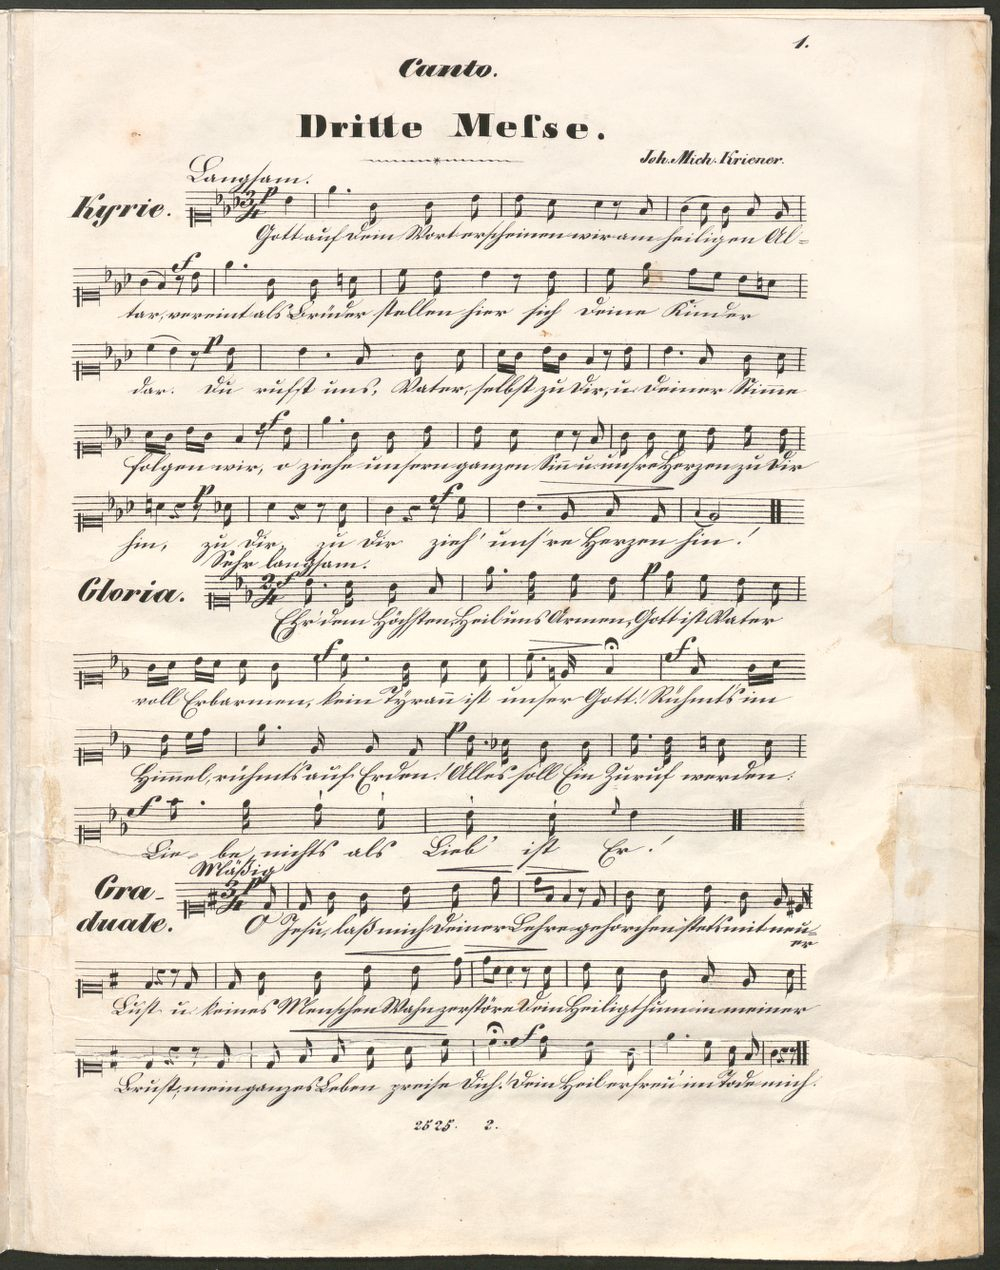 1.
Canto.
Dritte Meſse.
Joh. Mich. Kriener.
Langsam.
Kyrie.
p
Gott auf dein Wort erscheinen wir am heiligen Al-
f
tar, vereint als Brüder stellen hier sich deine Kinder
p
dar. Du rufst uns, Vater, selbst zu dir, u. deiner Stim̄e
f
folgen wir, o ziehe unsern ganzen Sin̄ u. unsre Herzen zu dir
p f
hin, zu dir, zu dir zieh' uns're Herzen hin!
Sehr langsam.
Gloria.
f p
Ehr' dem Höchsten, Heil uns Armen, Gott ist Vater
f f
voll Erbarmen, kein Tyran̄ ist unser Gott! Rühmt's im
p
Him̄el, rühmt's auf Erden! Alles soll Ein Zuruf werden:
f
Lie- be, nichts als Lieb' ist Er!
Mäßig
Gra-
duale.
p
O Jesu, laß mich deiner Lehre gehorchen stets mit neu-
er
Lust u. keines Menschen Wahn zerstöre dein Heiligthum in meiner
f
Brust; mein ganzes Leben preise dich! Dein Heil erfreu' im Tode mich.
2525. 2.